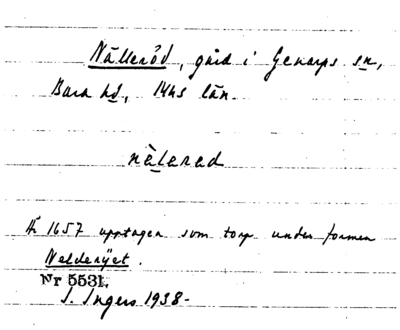 Nälleröd, gård i Genarps sn,
Bara hd, Mhs län.
nèlerad
År 1657 upptagen som torp under formen
Nelderyet.
Nr 5531.
I. Ingers 1938-